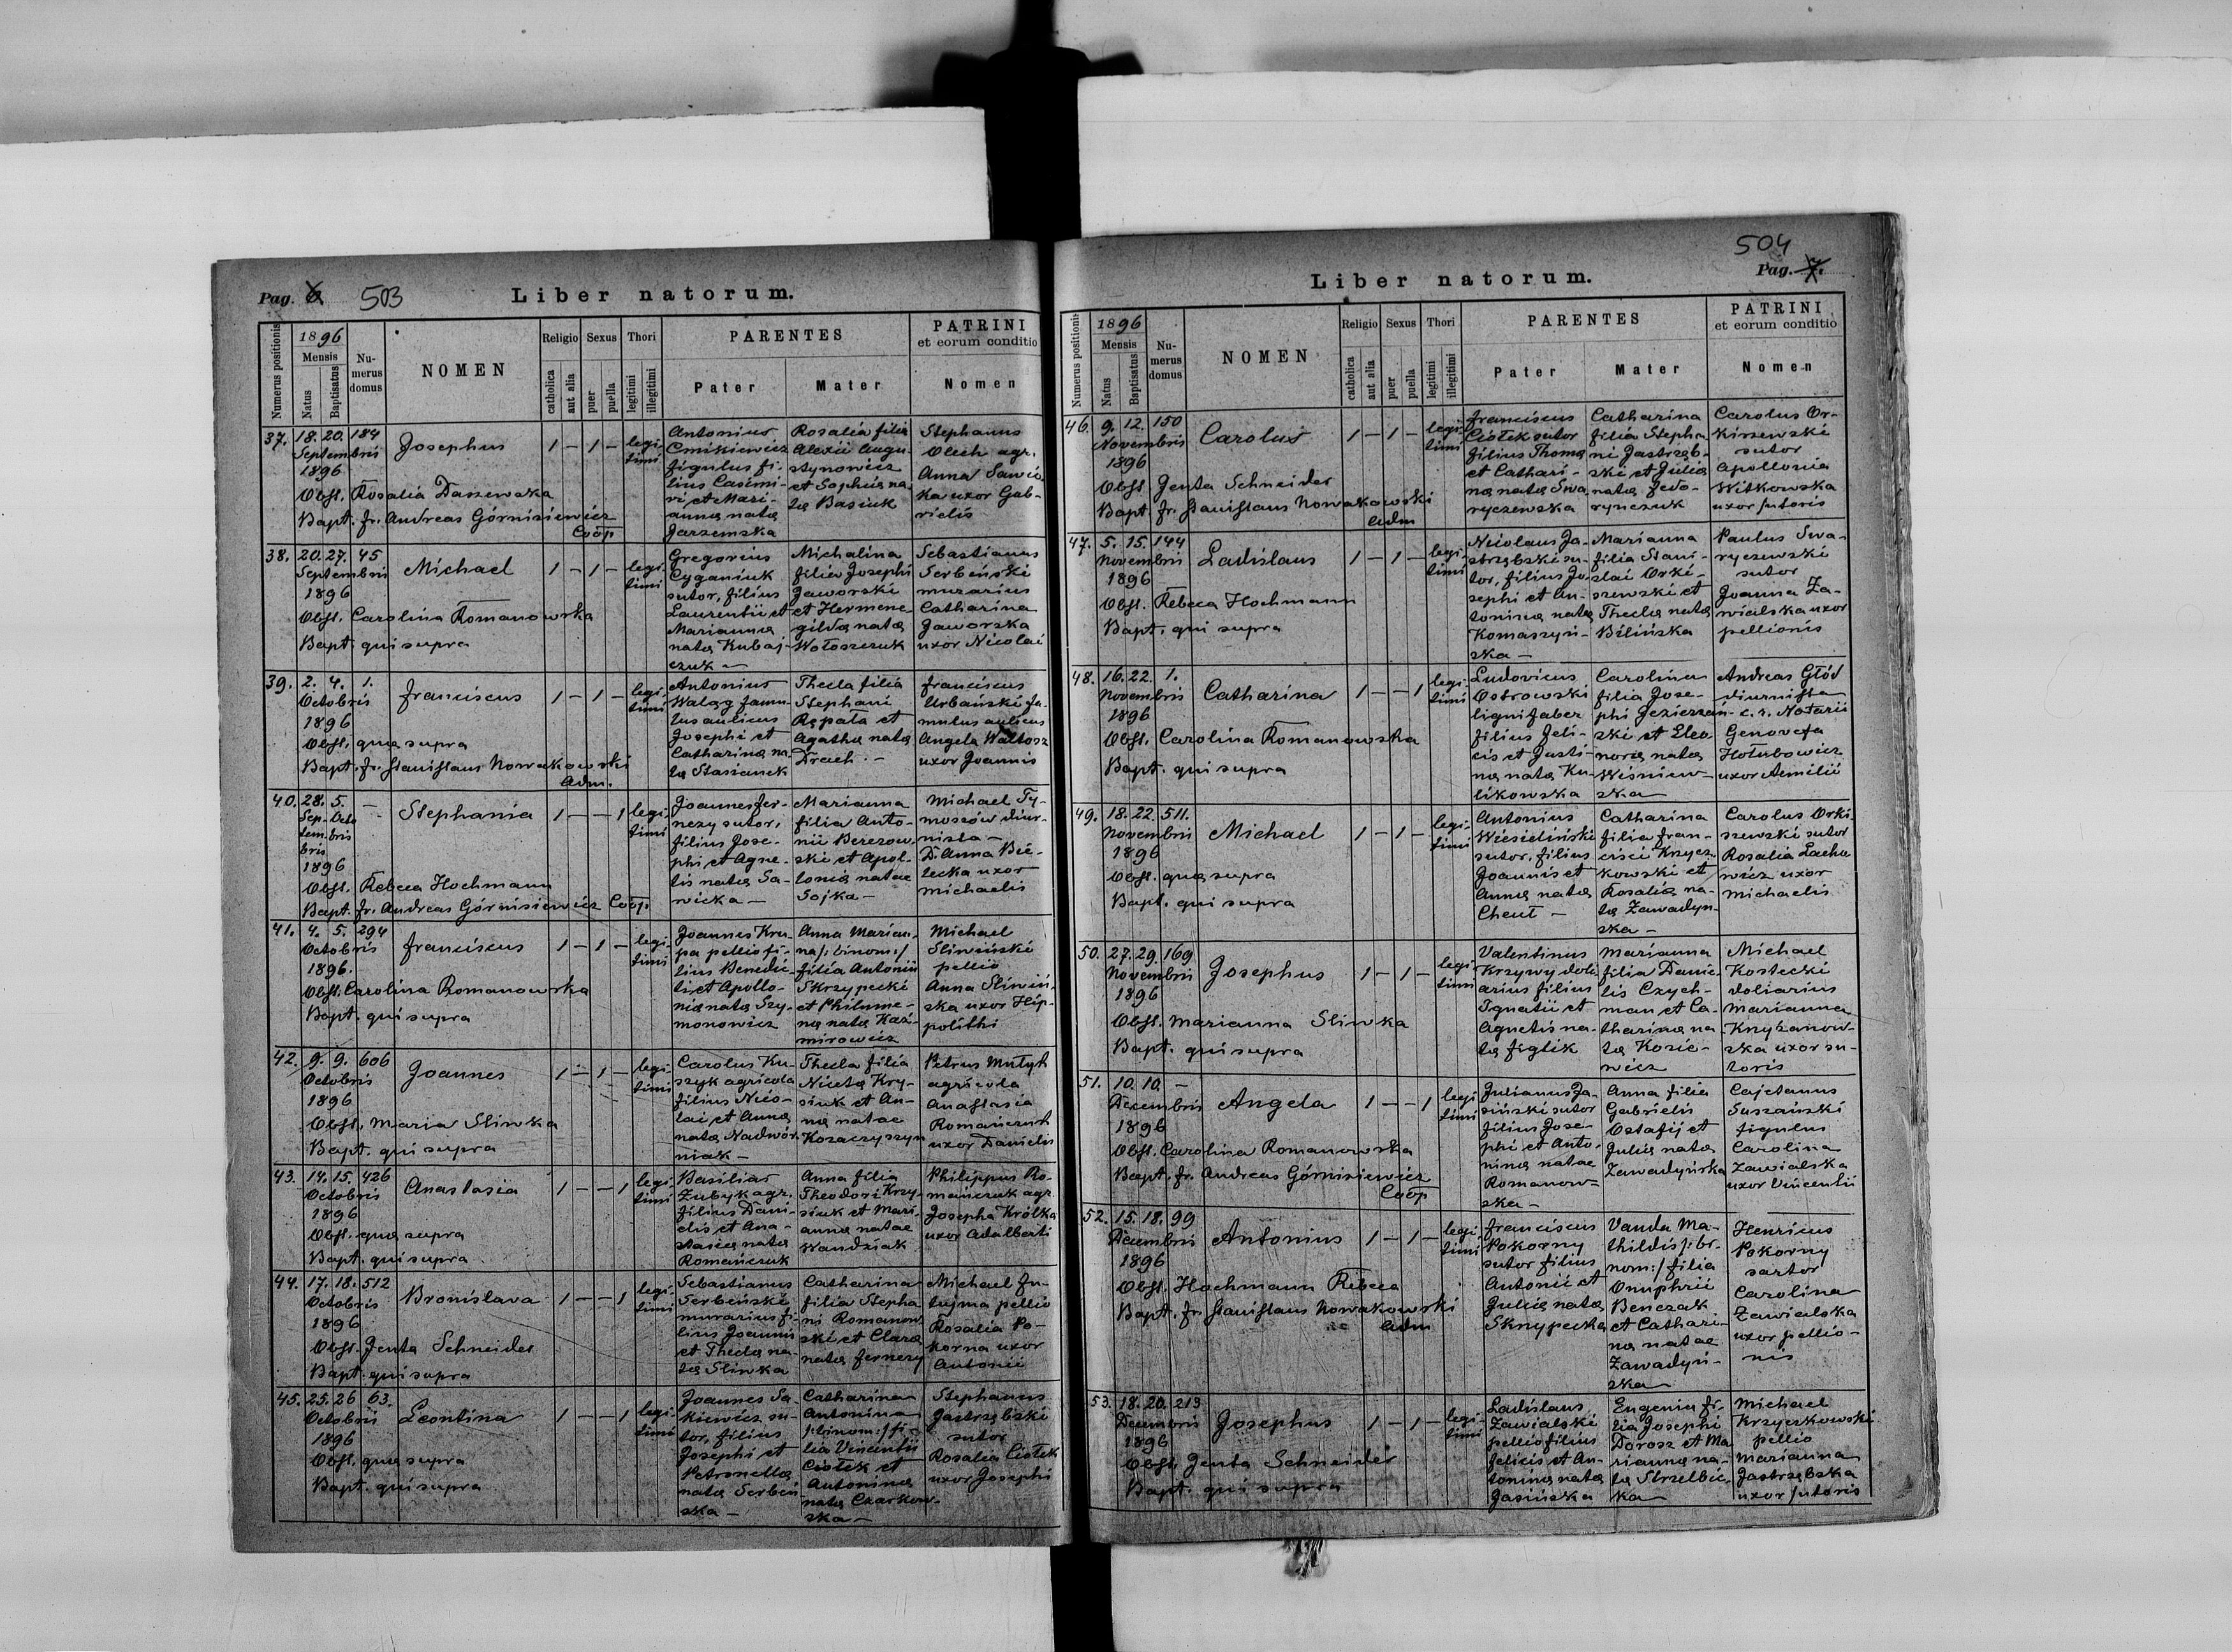 Pag. 6 503
Liber natorum.
Numerus positionis
1896
Mensis
Natus
Baptisatus
Nu-
merus
domus
NOMEN
Religio
catholica
aut alia
Sexus
puer
puella
Thori
legitimi
illegitimi
PARENTES
Pater
Mater
PATRINI
et eorum conditio
Nomen
37. 18. 20. 184
Septembris
1896
Josephus 1 – 1 – legi-
timi
Obst. Rosalia Daszewska
Bapt. fr. Andreas Górnisiewicz
Coop
Antonius
Cmikiewicz
figulus fi-
lius Casimi-
ri et Mari-
anna nata
Jarzemska
Rosalia filia
Alexii Augu-
stynowicz
et Sophia na-
ta Basiuk
Stephanus
Olech agr.
Anna Sawic-
ka uxor Gab-
rielis
38. 20. 27. 45
Septembris
1896
Michael 1 – 1 – legi-
timi
Obst. Carolina Romanowska
Bapt. qui supra
Gregorius
Cyganiuk
sutor, filius
Laurentii et
Marianna
nata Kubaj-
czuk –
Michalina
filia Josephi
Jaworski
et Hermene-
gilda nata
Wołoszczuk
Sebastianus
Serbeński
murarius
Catharina
Jaworska
uxor Nicolai
39. 2. 4. 1.
Octobris
1896
Franciscus 1 – 1 – legi-
timi
Obst. quæ supra
Bapt. fr. Stanislaus Nowakowski
Adm.
Antonius
Waląg famu-
lus aulicus
Josephi et
Catharina na-
ta Stasianek
Thecla filia
Stephani
Rępała et
Agatha nata
Drach. –
Franciscus
Urbański fa-
mulus aulicus
Angela Waltosz
uxor Joannis
40. 28. 5. –
Sep- Octo
tem- bris
bris
1896
Stephania 1 – – 1 legi-
timi
Obst. Rebeca Hochmann
Bapt. fr. Andreas Górnisiewicz Coop.
Joannes Fer-
nezy sutor,
filius Jose-
phi et Agne-
tis nata Sa-
wicka –
Marianna
filia Anto-
nii Berezow-
ski et Apol-
lonia natae
Sojka –
Michael Ty-
moszów diur-
nista –
D. Anna Bie-
lecka uxor
Michaelis
41. 4. 5. 294
Octobris
1896.
Franciscus 1 – 1 – legi-
timi
Obst. Carolina Romanowska
Bapt. qui supra
Joannes Kru-
pa pellio fi-
lius Benedic-
ti et Apollo-
nia nata Szy-
monowicz
Anna Marian-
na /: binom: /
filia Antonii
Skrzypecki
et Philume-
na nata Kazi-
mirowicz
Michael
Sliwiński
pellio
Anna Sliwiń-
ska uxor Hip-
polithi
42. 9. 9. 606
Octobris
1896
Joannes 1 – 1 – legi-
timi
Obst. Maria Sliwka
Bapt. qui supra
Carolus Ku-
szyk agricola
filius Nico-
lai et Anna
nata Nadwór-
niak –
Thecla filia
Niceta Kry-
siuk et An-
na natae
Kozaczyszyn
Petrus Mutyk
agricola
Anastasia
Romańczuk
uxor Danielis
43. 14. 15. 426
Octobris
1896
Anastasia 1 – – 1 legi-
timi
Obst. quæ supra
Bapt. qui supra
Basilius
Zubyk agr.
filius Dani-
elis et Ana-
stasia nata
Romańczuk
Anna filia
Theodori Kry-
siuk et Mari-
anna natae
Wandziak
Philippus Ro-
mańczuk agr.
Josepha Królka
uxor Adalberti
44. 17. 18. 512
Octobris
1896
Bronislava 1 – – 1 legi-
timi
Obst. Jenta Schneider
Bapt. qui supra
Sebastianus
Serbeński
murarius fi-
lius Joannis
et Thecla na-
ta Sliwka
Catharina
filia Stepha-
ni Romanow-
ski et Clara
nata Fernezy
Michael Fu-
tujma pellio
Rosalia Po-
korna uxor
Antonii
45. 25. 26 63.
Octobris
1896
Leontina 1 – – 1 legi-
timi
Obst. quæ supra
Bapt. qui supra
Joannes Sa-
kiewicz su-
tor, filius
Josephi et
Petronella
nata Serbeń-
ska –
Catharina
Antonina
/: binom: / fi-
lia Vincentii
Ciołek et
Antonina
nata Czarkow-
ska –
Stephanus
Jastrzębski
sutor
Rosalia Ciołek
uxor Josephi
504
Pag. 7.
Liber natorum.
Numerus positionis
1896
Mensis
Natus
Baptisatus
Nu-
merus
domus
NOMEN
Religio
catholica
aut alia
Sexus
puer
puella
Thori
legitimi
illegitimi
PARENTES
Pater
Mater
PATRINI
et eorum conditio
Nomen
46. 9. 12. 150
Novembris
1896
Carolus 1 – 1 – legi-
timi
Obst Jenta Schneider
Bapt fr. Stanislaus Nowakowski
Adm
Franciscus
Ciołek sutor
filius Thoma
et Cathari-
na nata Swa-
ryczewska
Catharina
filia Stepha-
ni Jastrzęb-
ski et Julia
nata Fedo-
rynczuk
Carolus Or-
kiszewski
sutor
Apollonia
Witkowska
uxor sutoris
47. 5. 15. 144
Novembris
1896
Ladislaus 1 – 1 – legi-
timi
Obst. Rebeca Hochmann
Bapt. qui supra
Nicolaus Ja-
strzębski su-
tor, filius Jo-
sephi et An-
tonina nata
Komaszyń-
ska –
Marianna
filia Stani-
slai Orki-
szewski et
Thecla nata
Bilińska
Paulus Swa-
ryczewski
sutor
Joanna Za-
wialska uxor
pellionis
48. 16. 22. 1.
Novembris
1896
Catharina 1 – – 1 legi-
timi
Obst. Carolina Romanowska
Bapt. qui supra
Ludovicus
Ostrowski
lignifaber
filius Feli-
cis et Justi-
na nata Ku-
likowska
Carolina
filia Jose-
phi Jezierzań-
ski et Eleo-
nora nata
Wiśniew-
ska
Andreas Głód
diurnista
c. r. Notarii
Genovefa
Hołubowicz
uxor Aemilii
49. 18. 22. 511.
Novembris
1896
Michael 1 – 1 – legi-
timi
Obst. quæ supra
Bapt. qui supra
Antonius
Wiesieliński
sutor, filius
Joannis et
Anna nata
Cheut –
Catharina
filia Fran-
cisci Krycz-
kowski et
Rosalia na-
ta Zawadyń-
ska –
Carolus Orki-
szewski sutor
Rosalia Lacho-
wicz uxor
Michaelis
50. 27. 29. 169
Novembris
1896
Josephus 1 – 1 – legi-
timi
Obst. Marianna Sliwka
Bapt. qui supra
Valentinus
Krzywy doli-
arius filius
Ignatii et
Agnetis na-
ta Figlik
Marianna
filia Danie-
lis Czych-
man et Ca-
tharina na-
ta Kozie-
wicz
Michael
Kostecki
doliarius
Marianna
Knyzanow-
ska uxor su-
toris
51. 10. 10. –
Decembris
1896
Angela 1 – – 1 legi-
timi
Obst. Carolina Romanowska
Bapt. fr. Andreas Górnisiewicz
Coop
Julianus Ja-
siński sutor
filius Jose-
phi et Anto-
nina natae
Romanow-
ska –
Anna filia
Gabrielis
Ostafij et
Julia nata
Zawadyńska
Cajetanus
Suszański
figulus
Carolina
Zawialska
uxor Vincentii
52. 15. 18. 99
Decembris
1896
Antonius 1 – 1 – legi-
timi
Obst. Hochmann Rebeca
Bapt. fr. Stanislaus Nowakowski
Adm
Franciscus
Pokorny
sutor filius
Antonii et
Julia nata
Skrzypecka
Vanda Ma-
thildis /: bi-
nom: / filia
Onuphrii
Benczak
et Cathari-
na natae
Zawadyń-
ska
Henricus
Pokorny
sartor
Carolina
Zawialska
uxor pellio-
nis
53. 18. 20. 213
Decembris
1896
Josephus 1 – 1 – legi-
timi
Obst. Jenta Schneider
Bapt. qui supra
Ladislaus
Zawialski
pellio filius
Felicis et An-
tonina nata
Jasińska
Eugenia fi-
lia Josephi
Dorosz et Ma-
rianna na-
ta Strzelbic-
ka
Michael
Krzyczkowski
pellio
Marianna
Jastrzębska
uxor sutoris